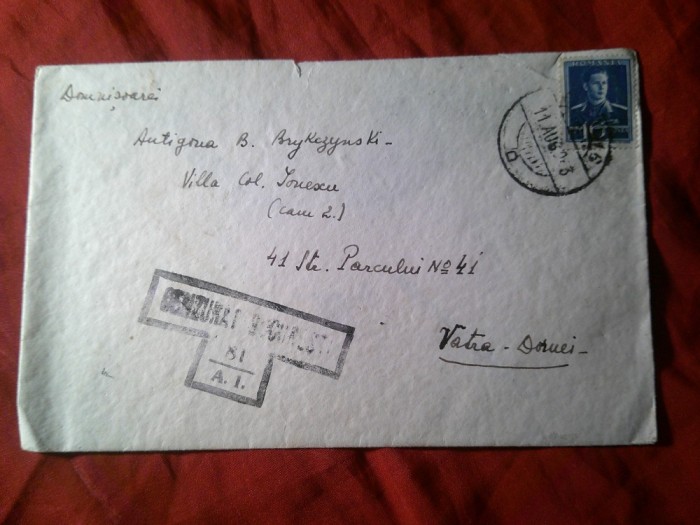 Domnișoarei
Antigona B. Brykczynski-
Villa Col. Ionescu
(cam 2.)
41 Str. Parcului № 41
Vatra-Dornei-
ROMANIA
11 AUG
CENZURAT BUCUREȘTI
81
A. I.